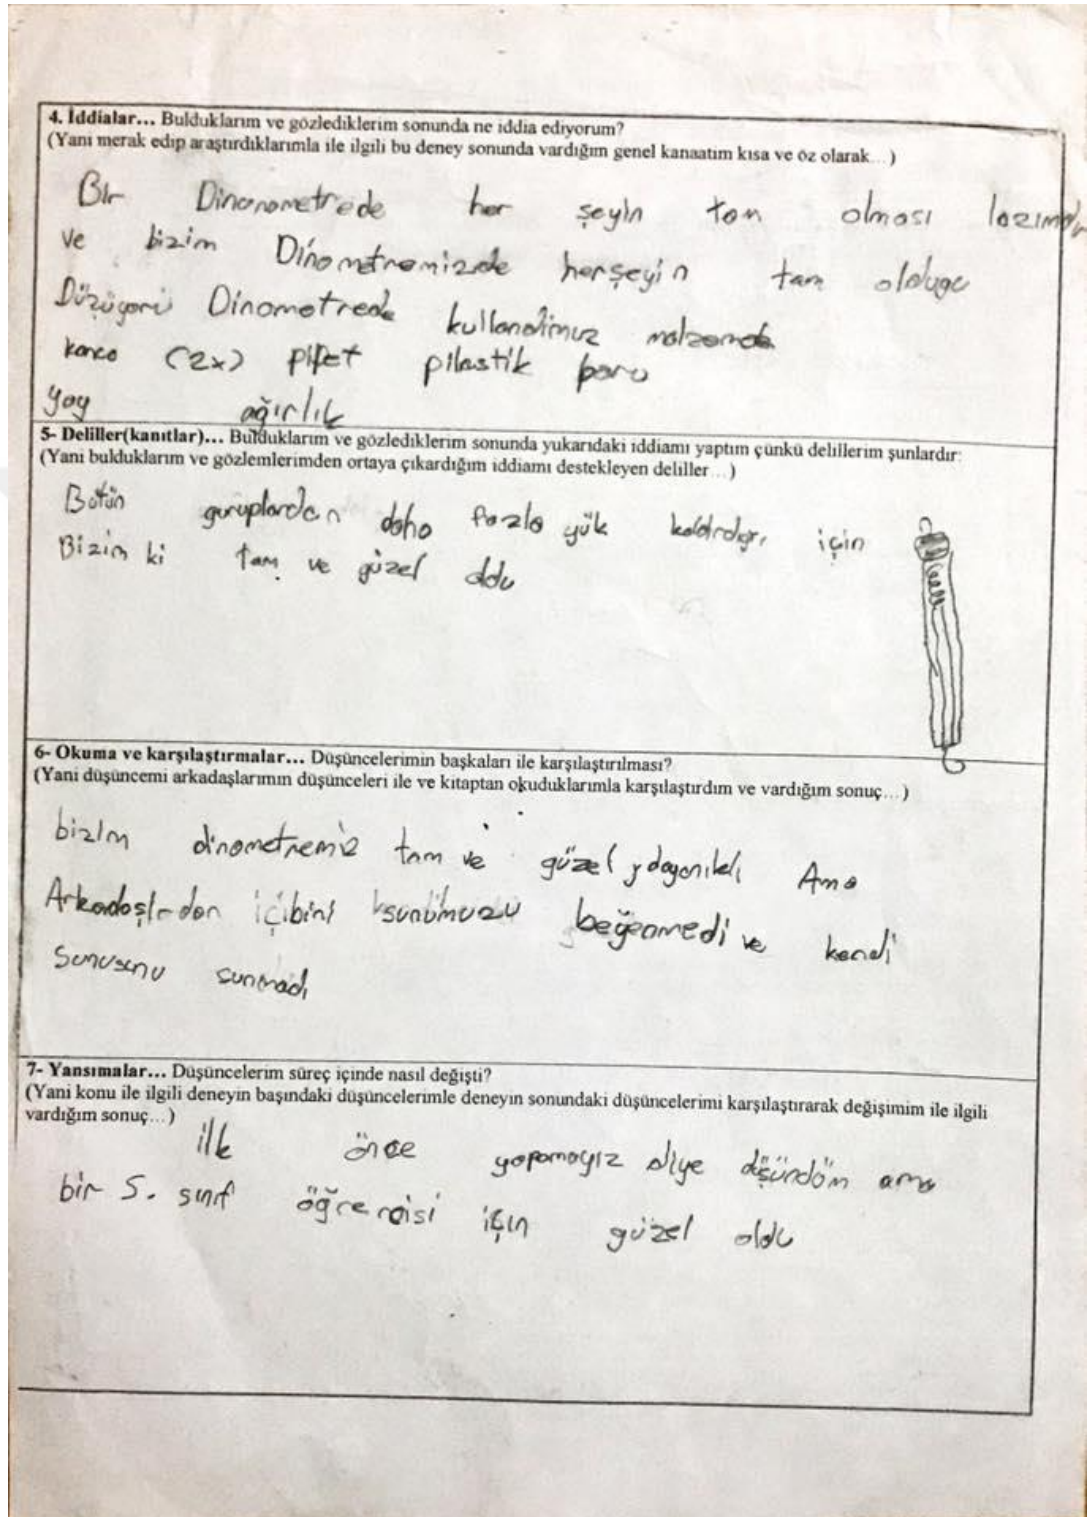 4. İddialar... Bulduklarım ve gözlediklerim sonunda ne iddia ediyorum?
(Yani merak edip araştırdıklarımla ile ilgili bu deney sonunda vardığım genel kanaatim kısa ve öz olarak...)
Bir Dinonometrede her şeyin tam olması lazımdır
ve bizim Dinometremizde herşeyin tam olduğu
Düzügorü Dinometrede kullandımız malzemede
kanca (2x) pipet pilastik boru
yay ağırlık
5- Deliller(kanıtlar)... Bulduklarım ve gözlediklerim sonunda yukarıdaki iddiamı yaptım çünkü delillerim şunlardır:
(Yani bulduklarım ve gözlemlerimden ortaya çıkardığım iddiamı destekleyen deliller...)
Bütün guruplardan daha fazla yük kaldırdığı için
Bizim ki tam ve güzel oldu
6- Okuma ve karşılaştırmalar... Düşüncelerimin başkaları ile karşılaştırılması?
(Yani düşüncemi arkadaşlarımın düşünceleri ile ve kitaptan okuduklarımla karşılaştırdım ve vardığım sonuç...)
bizim dinometremiz tam ve güzel dayanıklı Ama
Arkadaşlardan sunumuzu beğenmedi ve kendi
Sunusunu sunmadı
7- Yansımalar... Düşüncelerim süreç içinde nasıl değişti?
(Yani konu ile ilgili deneyin başındaki düşüncelerimle deneyin sonundaki düşüncelerimi karşılaştırarak değişimim ile ilgili
vardığım sonuç...)
ilk önce yapamayız diye düşündöm ama
bir 5. sınıf öğrencisi için güzel oldu